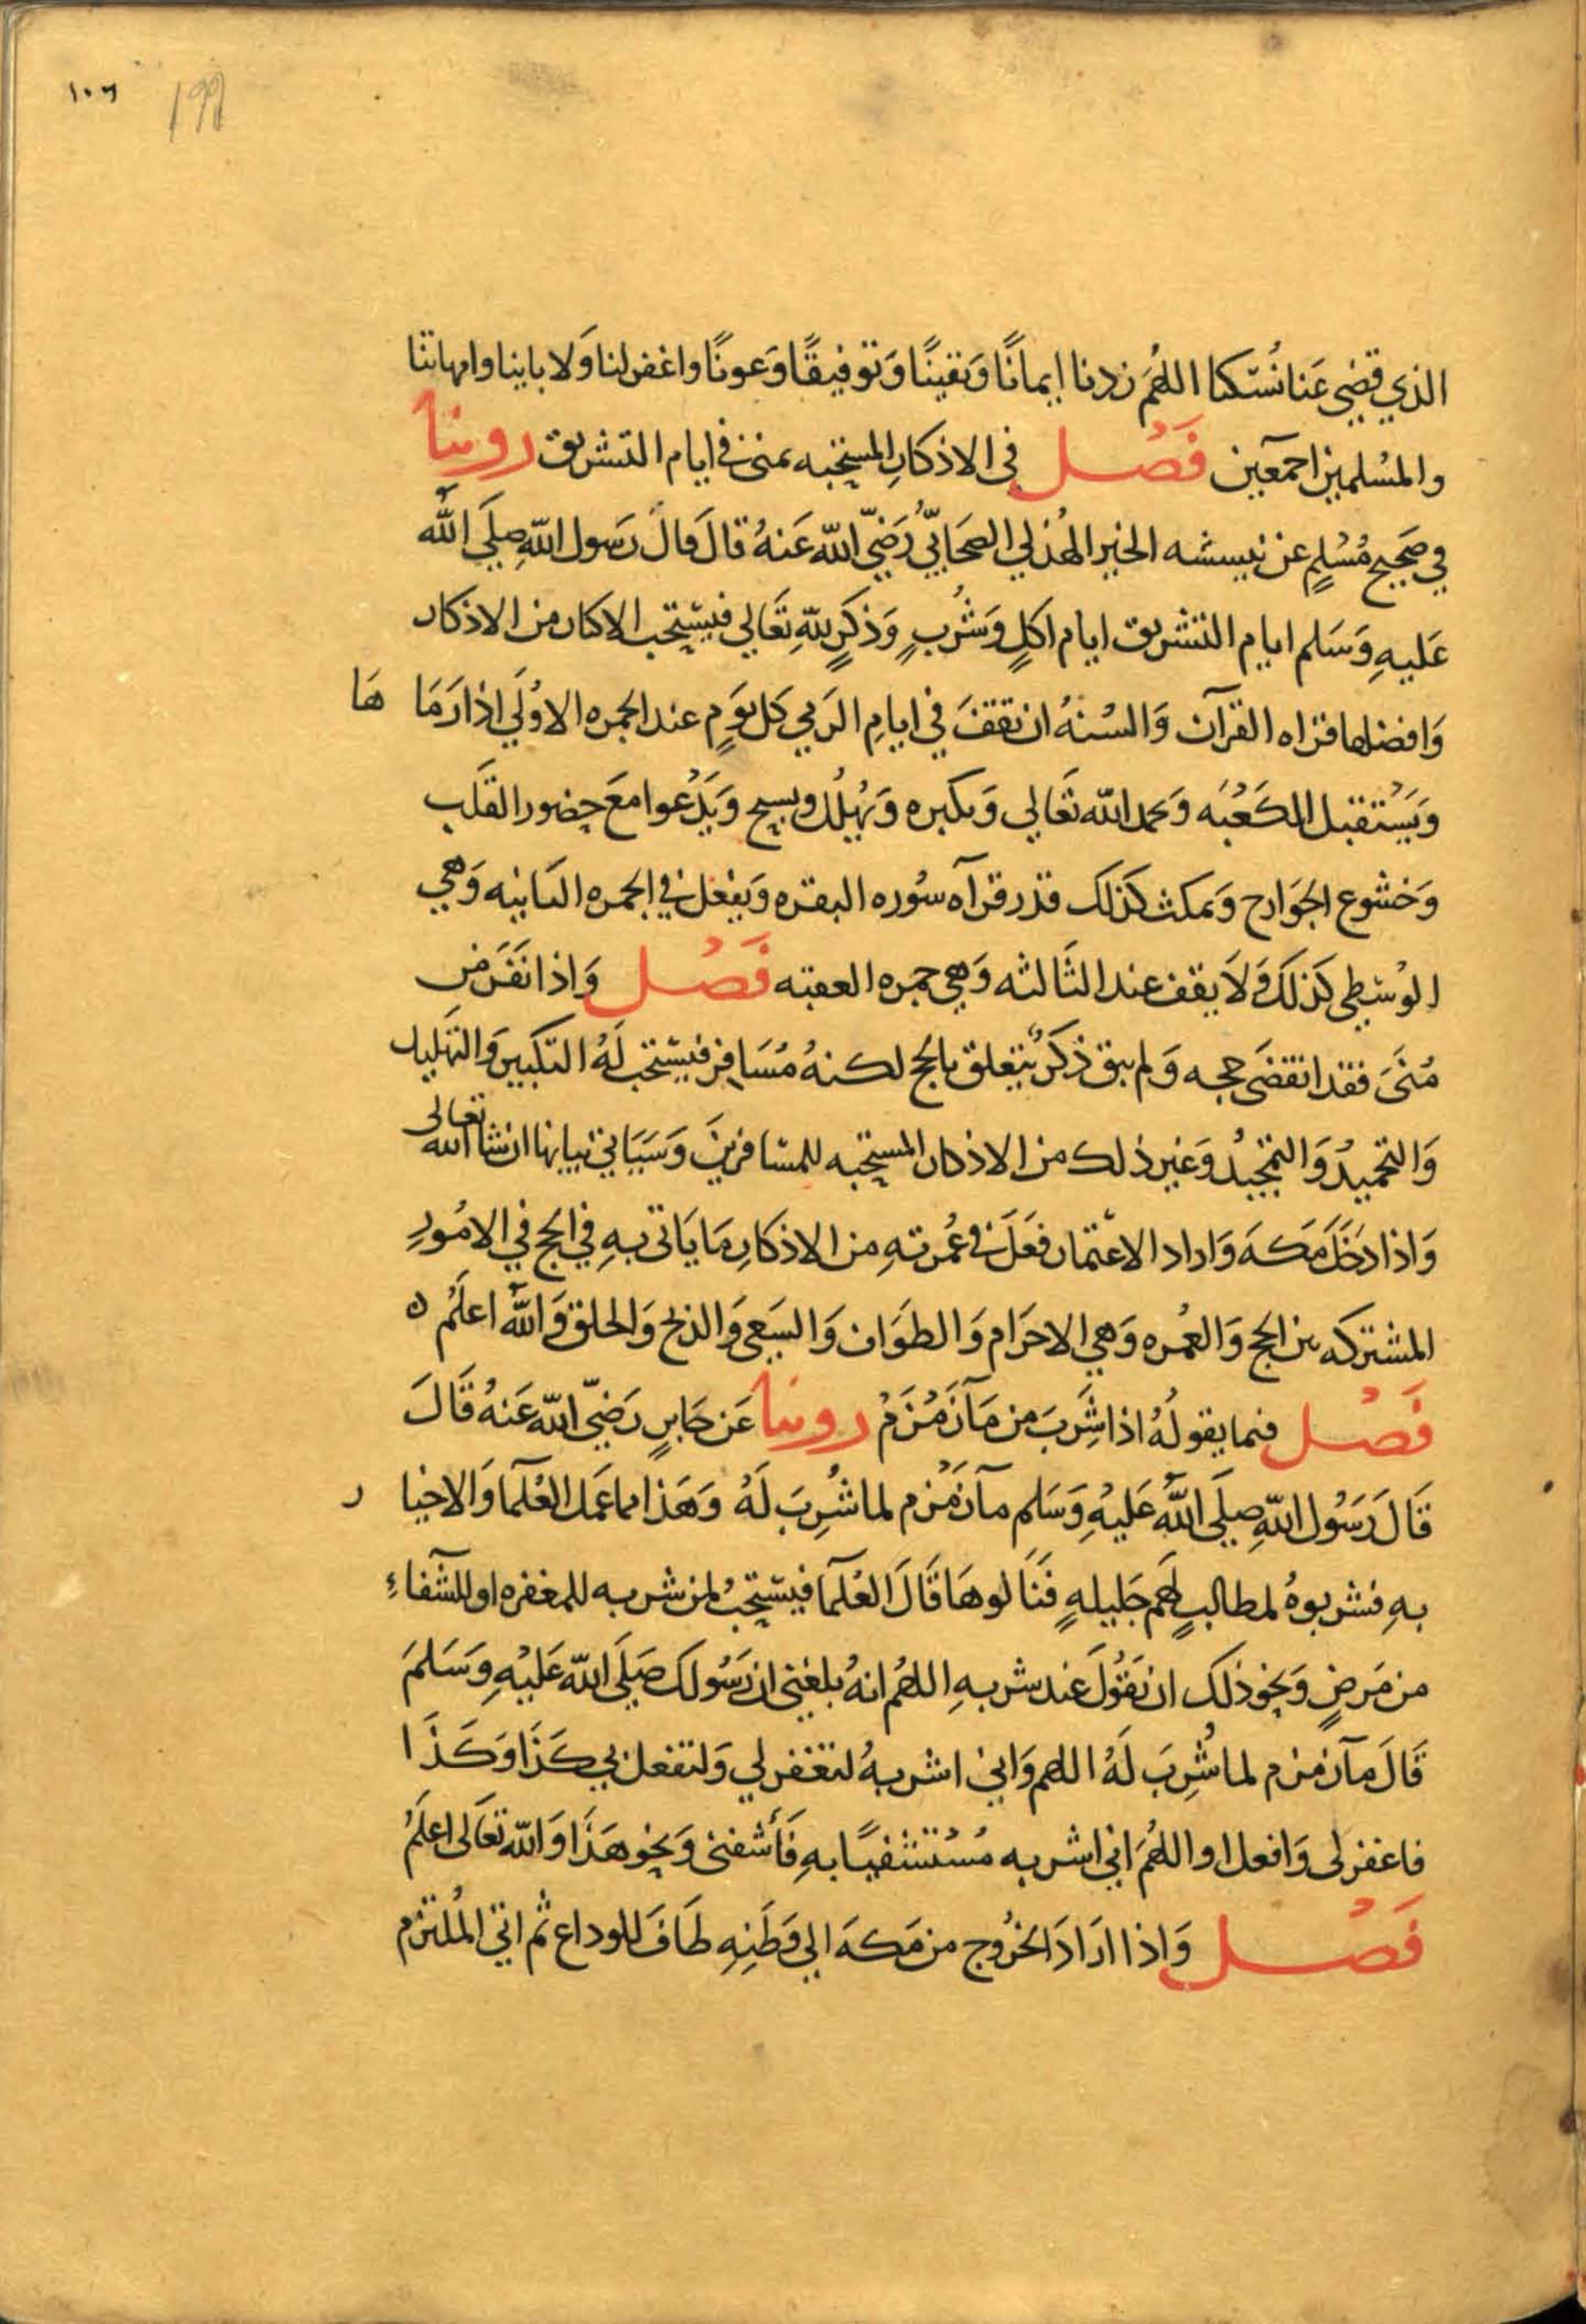 ١٠٦ ١٩٩
الذي قضي عَنا نُسُكنا اللهُمَ زدنا إيمانًا وَيقينًا وَتوفيقًا وَعونًا واغفرلنا وَلابائنا وامهاتنا
والمسُلمين اجمَعين فَصْل في الاذكارِ المستحبه بمنى في ايام التشريق روينا
في صَحيح مُسْلمٍ عن نبيشه الخير الهُذلي الصحَابيّ رَضيّ الله عَنهُ قالَ قالَ رَسول اللهِ صلَي اللهُ
عَليهِ وَسَلم ايام التشريق ايام اكلٍ وَشُربٍ وَذكرٍ للهِ تعَالي فيسْتحب الاكثار من الاذكار
وَافضلها قراه القرآن وَالسُنهُ ان تقفَ في ايامِ الرَمي كل يومٍ عند الجمره الاوُلَي اذا رَمَا هَا
وَيَسْتقبل الكَعْبَه وَيحمد الله تعَالي وَيكبره وَيُهلل ويسبح وَيَدْعوا معَ حضور القلَب
وَخشوع الجوَارح وَيمكث كذلك قدر قرآه سُوره البقره وَيفعل في الجمره الثانيه وَهي
الوُسْطي كذلكَ وَلاَ يقف عند الثَالثه وَهي جمره العقبه فَصْل وَاذا نفَرَ من
مُنَىَ فقد انقضَى حجه وَلم يبق ذكرٌ يتعلق بالحج لكنهُ مُسَافر فيسْتحب لَهُ التكبير وَالتهليل
وَالتحميدُ وَالتمجيدُ وَغير ذلك من الاذكار المستحبه للمسَافرينَ وَسَيَاتي بيانها ان شا الله تعالى
وَاذا دخَلَ مَكهَ وَاراد الاعتمار فعَلَ في عُمرتهِ من الاذكارِ مَا يَاتى بهِ في الحج في الامُورِ
المشتركه بين الحج وَالعمُره وَهي الاحرَام وَالطوَاف وَالسَعي وَالذبح وَالحلق وَاللهُ اعلمُ ٥
فَصْل فيما يقولُهُ اذا شَربَ من مَآ زَمْزَمْ روينا عَن جَابرٍ رَضيّ الله عَنهُ قَالَ
قَالَ رَسُول اللهِ صلَي اللهُ عَليْهِ وَسَلم مآ زَمْزم لما شُربَ لَهُ وَهَذا مما عَمل العُلمآ وَالاخيا ر
بهِ فشربوهُ لمطالبٍ لهُم جَليلهٍ فَنَالوهَا قَالَ العُلمآ فيستحبُ لمن شربه للمغفره او للشفاءِ
من مَرضٍ وَنحو ذلك ان يَقُولَ عند شربهِ اللهُم انهُ بلغني ان رَسُولك صَلَي الله عَليْهِ وَسَلمَ
قَالَ مآ زمزم لما شُربَ لَهُ اللهم وَاني اشربهُ لتغفرلي وَلتفعل بي كَذَا وَكَذَا
فاغفرلى وَافعل او اللهُمَ اني اشربه مُسْتشْفيًا بهِ فَأَشفنى وَنحو هَذَا وَالله تعَالى اعلَمُ
فَصْل وَاذا ارَادَ الخرُوج من مَكهَ الي وَطَنِهِ طَافَ للوداع ثم اتي المُلتزم